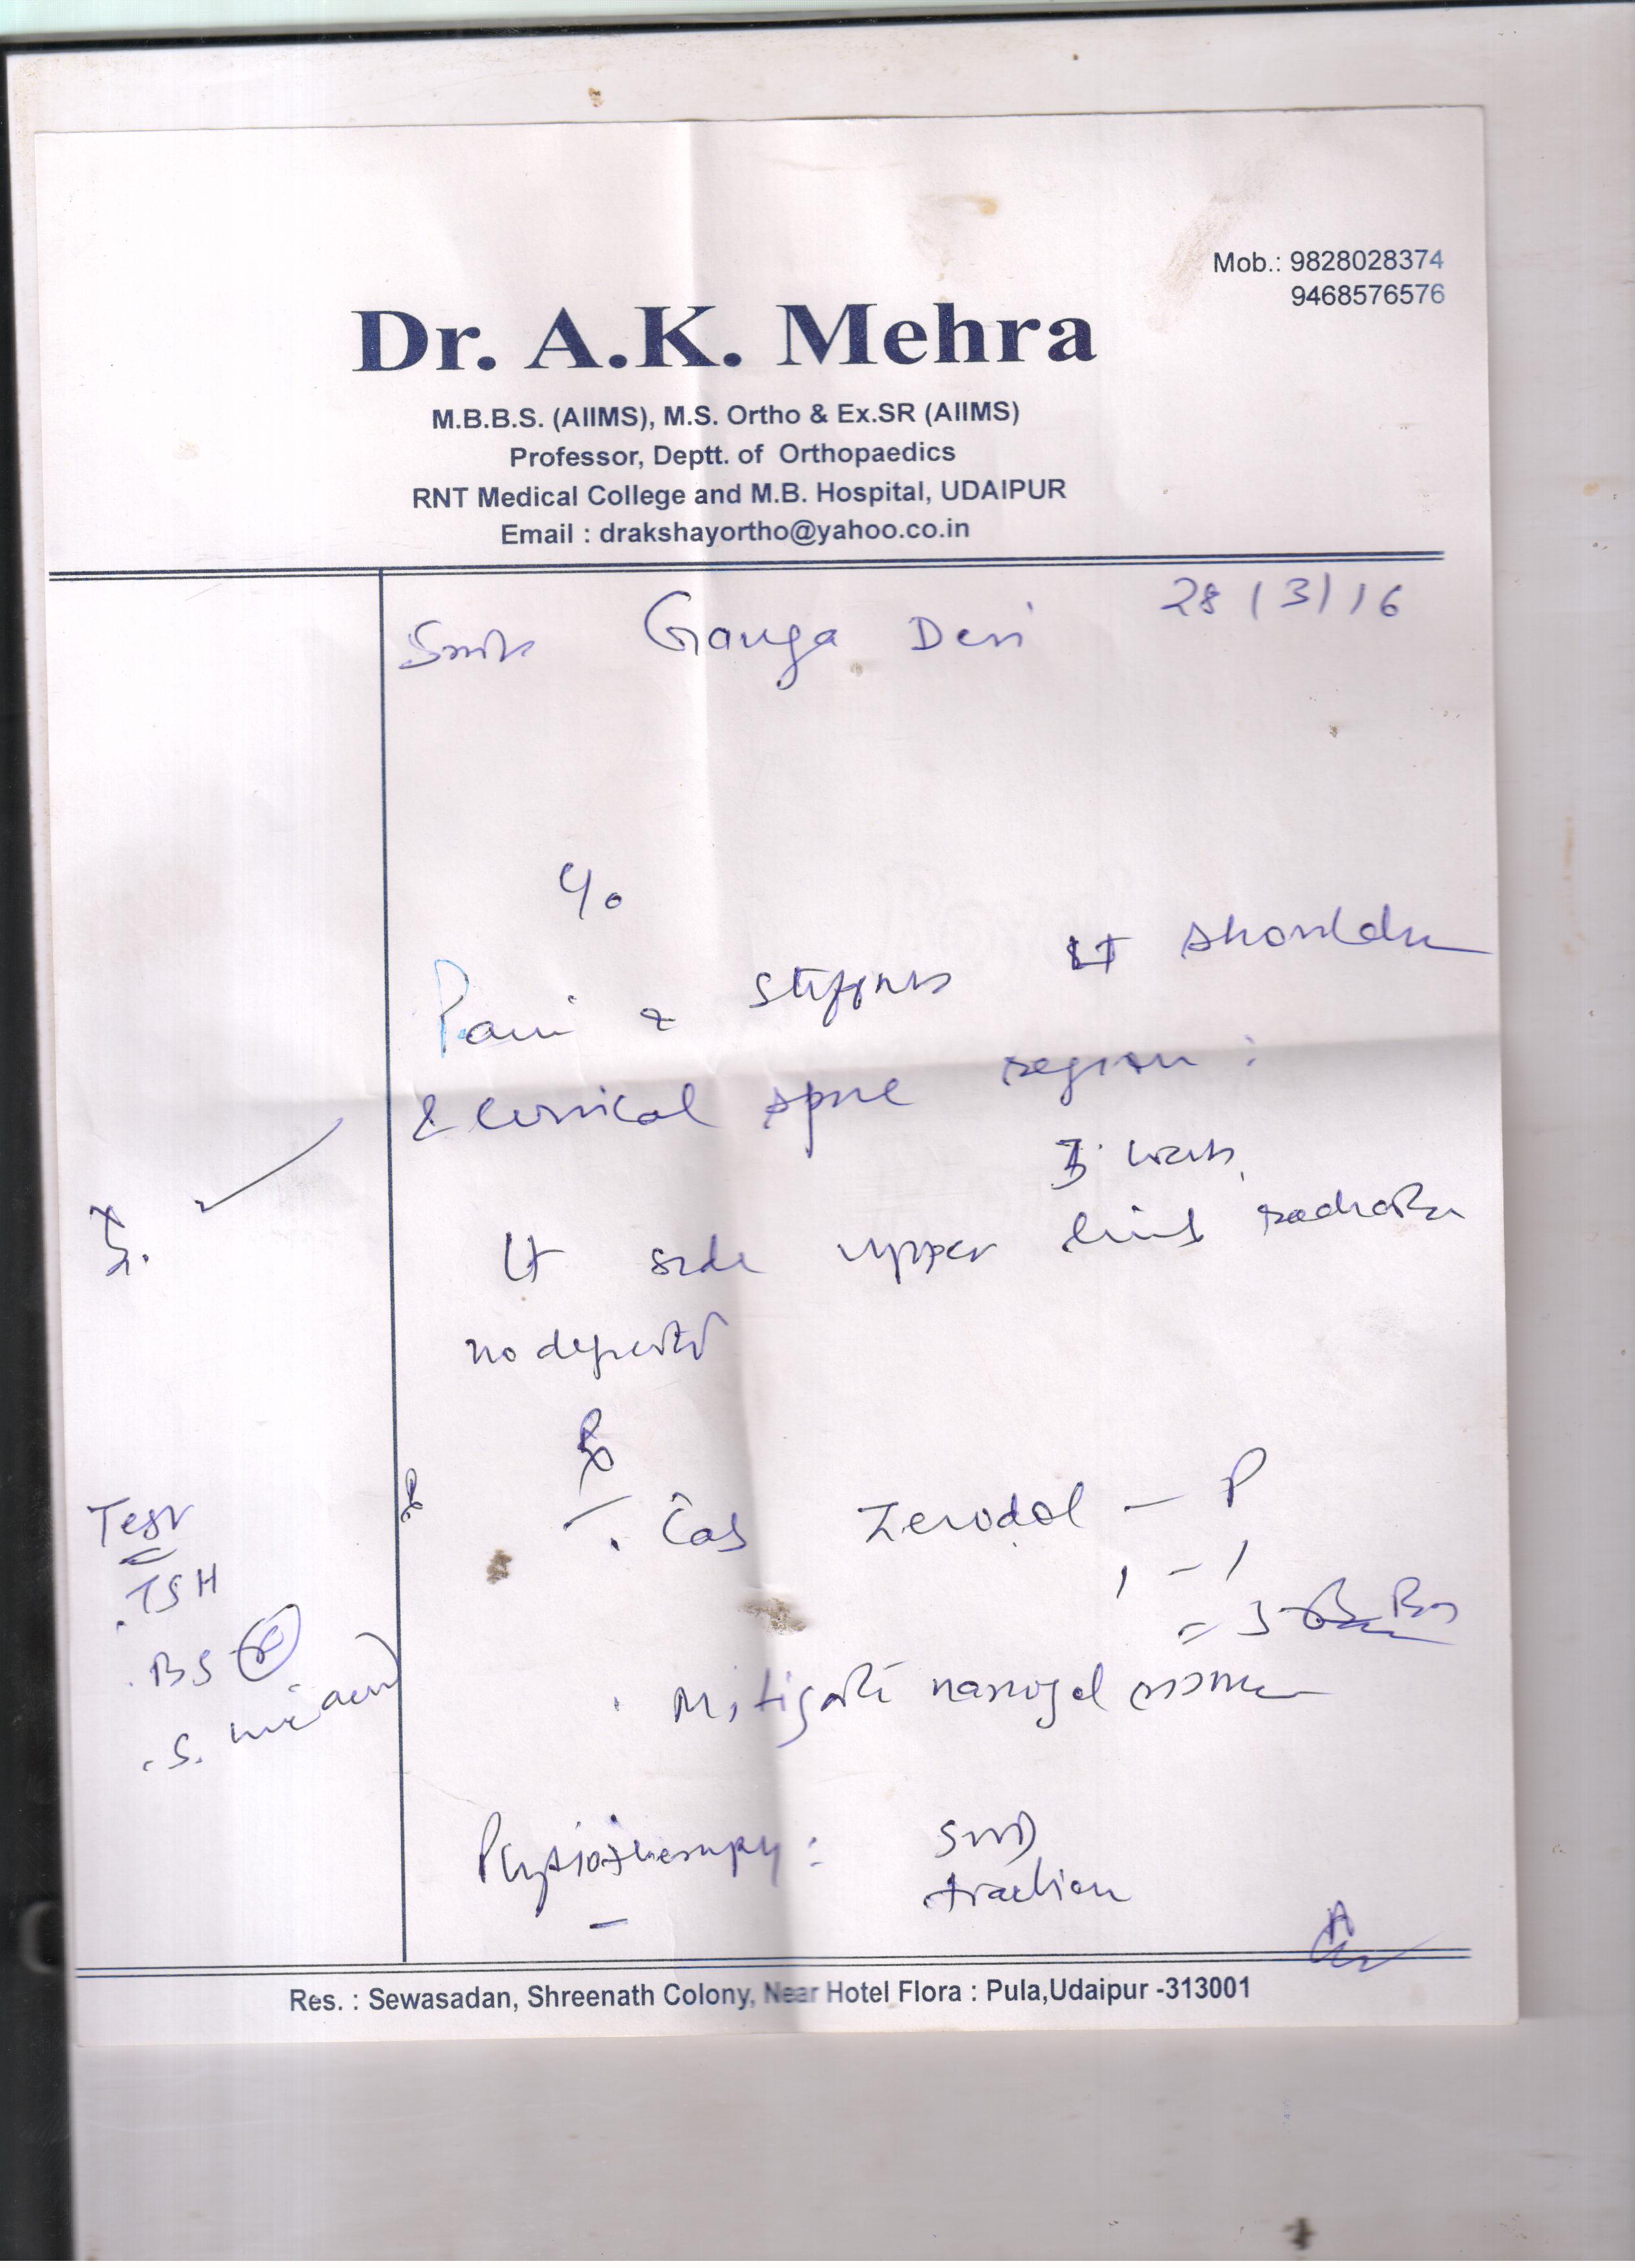 Mob.: 9828028374
9468576576
Dr. A.K. Mehra
M.B.B.S. (AIIMS), M.S. Ortho & Ex.SR (AIIMS)
Professor, Deptt. of Orthopaedics
RNT Medical College and M.B. Hospital, UDAIPUR
Email : drakshayortho@yahoo.co.in
28/3/16
Ganga Devi
c/o
Pain & stiffness Lt shoulder
& cervical spine region :
Lt side upper limb radiation
no deficit
Test
. TSH
. BS
. S.
Zerodol - P
1 - 1
Physiotherapy : SWD
traction
Res. : Sewasadan, Shreenath Colony, Near Hotel Flora : Pula,Udaipur -313001